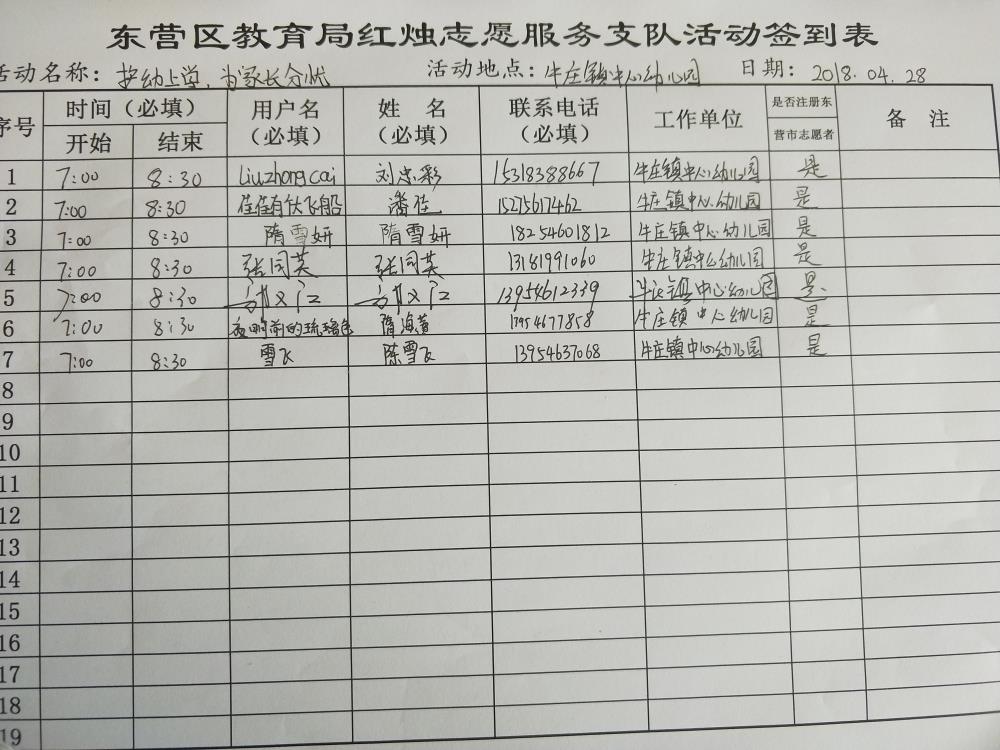 东营区教育局红烛志愿服务支队活动签到表
活动名称：护幼上学，为家长分忧 活动地点：牛庄镇中心幼儿园 日期：2018.04.28
序号 时间（必填） 用户名（必填） 姓 名（必填） 联系电话（必填） 工作单位 是否注册东营市志愿者 备 注
开始 结束
1 7:00 8:30 Liuzhongcai 刘忠彩 15318388667 牛庄镇中心幼儿园 是
2 7:00 8:30 佳佳有伙飞船 潘佳 15275617462 牛庄镇中心幼儿园 是
3 7:00 8:30 隋雪妍 隋雪妍 18254601812 牛庄镇中心幼儿园 是
4 7:00 8:30 张同英 张同英 13181991060 牛庄镇中心幼儿园 是
5 7:00 8:30 13954612339 牛庄镇中心幼儿园 是
6 7:00 8:30 夜明前的琉璃色 隋海 13954677858 牛庄镇中心幼儿园 是
7 7:00 8:30 雪飞 陈雪飞 13954637068 牛庄镇中心幼儿园 是
8
9
10
11
12
13
14
15
16
17
18
19